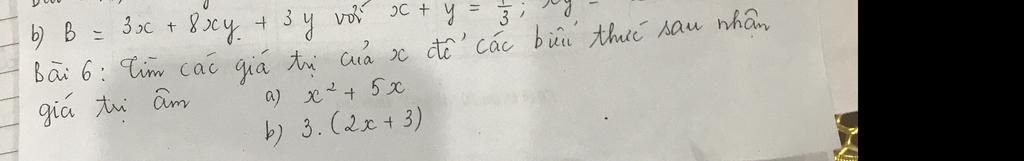 b) B = 3x + 8xy + 3y với x + y = 1/3; xy =
Bài 6: Tìm các giá trị của x để các biểu thức sau nhận
giá trị âm a) x² + 5x
b) 3.(2x + 3)